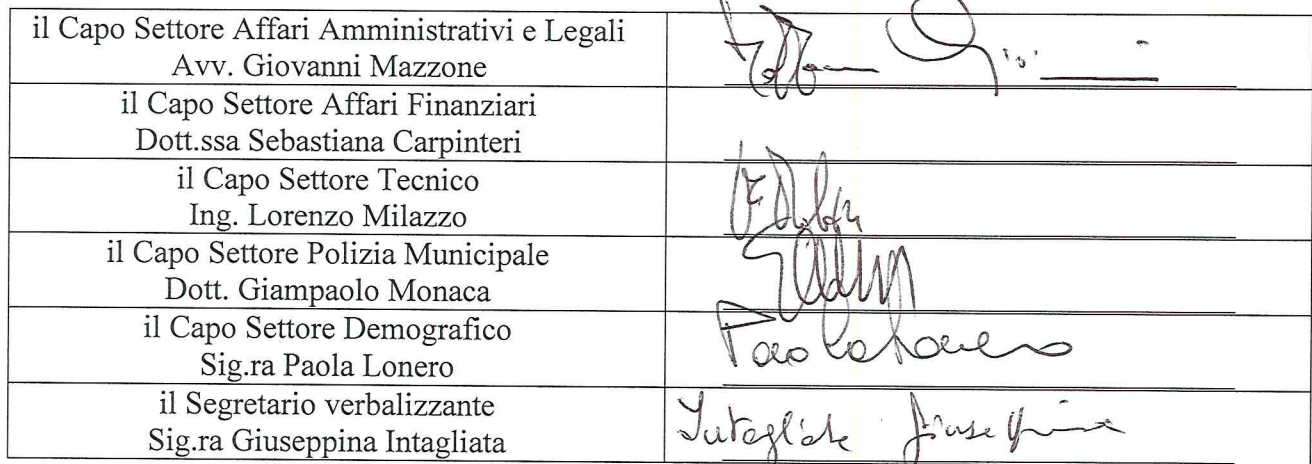 il Capo Settore Affari Amministrativi e Legali
Avv. Giovanni Mazzone
il Capo Settore Affari Finanziari
Dott.ssa Sebastiana Carpinteri
il Capo Settore Tecnico
Ing. Lorenzo Milazzo
il Capo Settore Polizia Municipale
Dott. Giampaolo Monaca
il Capo Settore Demografico
Sig.ra Paola Lonero
Paola Lonero
il Segretario verbalizzante
Sig.ra Giuseppina Intagliata
Intagliata Giuseppina